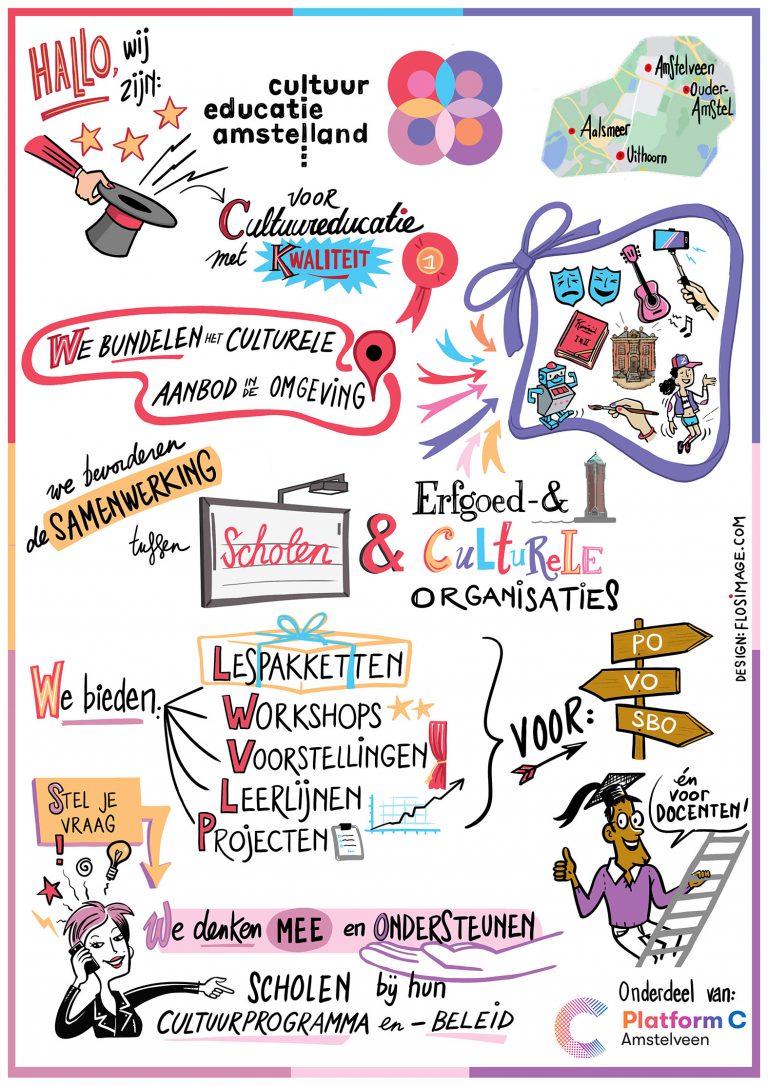 HALLO, wij
zijn:
cultuur
educatie
amstelland
Amstelveen
Ouder-
Amstel
Aalsmeer
Uithoorn
voor
Cultuureducatie
met KWALITEIT
1
WE BUNDELEN HET CULTURELE
AANBOD IN DE OMGEVING
I & II
2
we bevorderen
de SAMENWERKING
tussen
Scholen
&
Erfgoed- &
CULTURELE
ORGANISATIES
DESIGN: FLOSIMAGE.COM
We bieden:
LESPAKKETTEN
WORKSHOPS
VOORSTELLINGEN
LEERLIJNEN
PROJECTEN
VOOR:
PO
VO
SBO
STEL JE
VRAAG
!
én
voor
DOCENTEN!
We denken MEE en ONDERSTEUNEN
SCHOLEN bij hun
CULTUURPROGRAMMA en - BELEID
Onderdeel van:
Platform C
Amstelveen